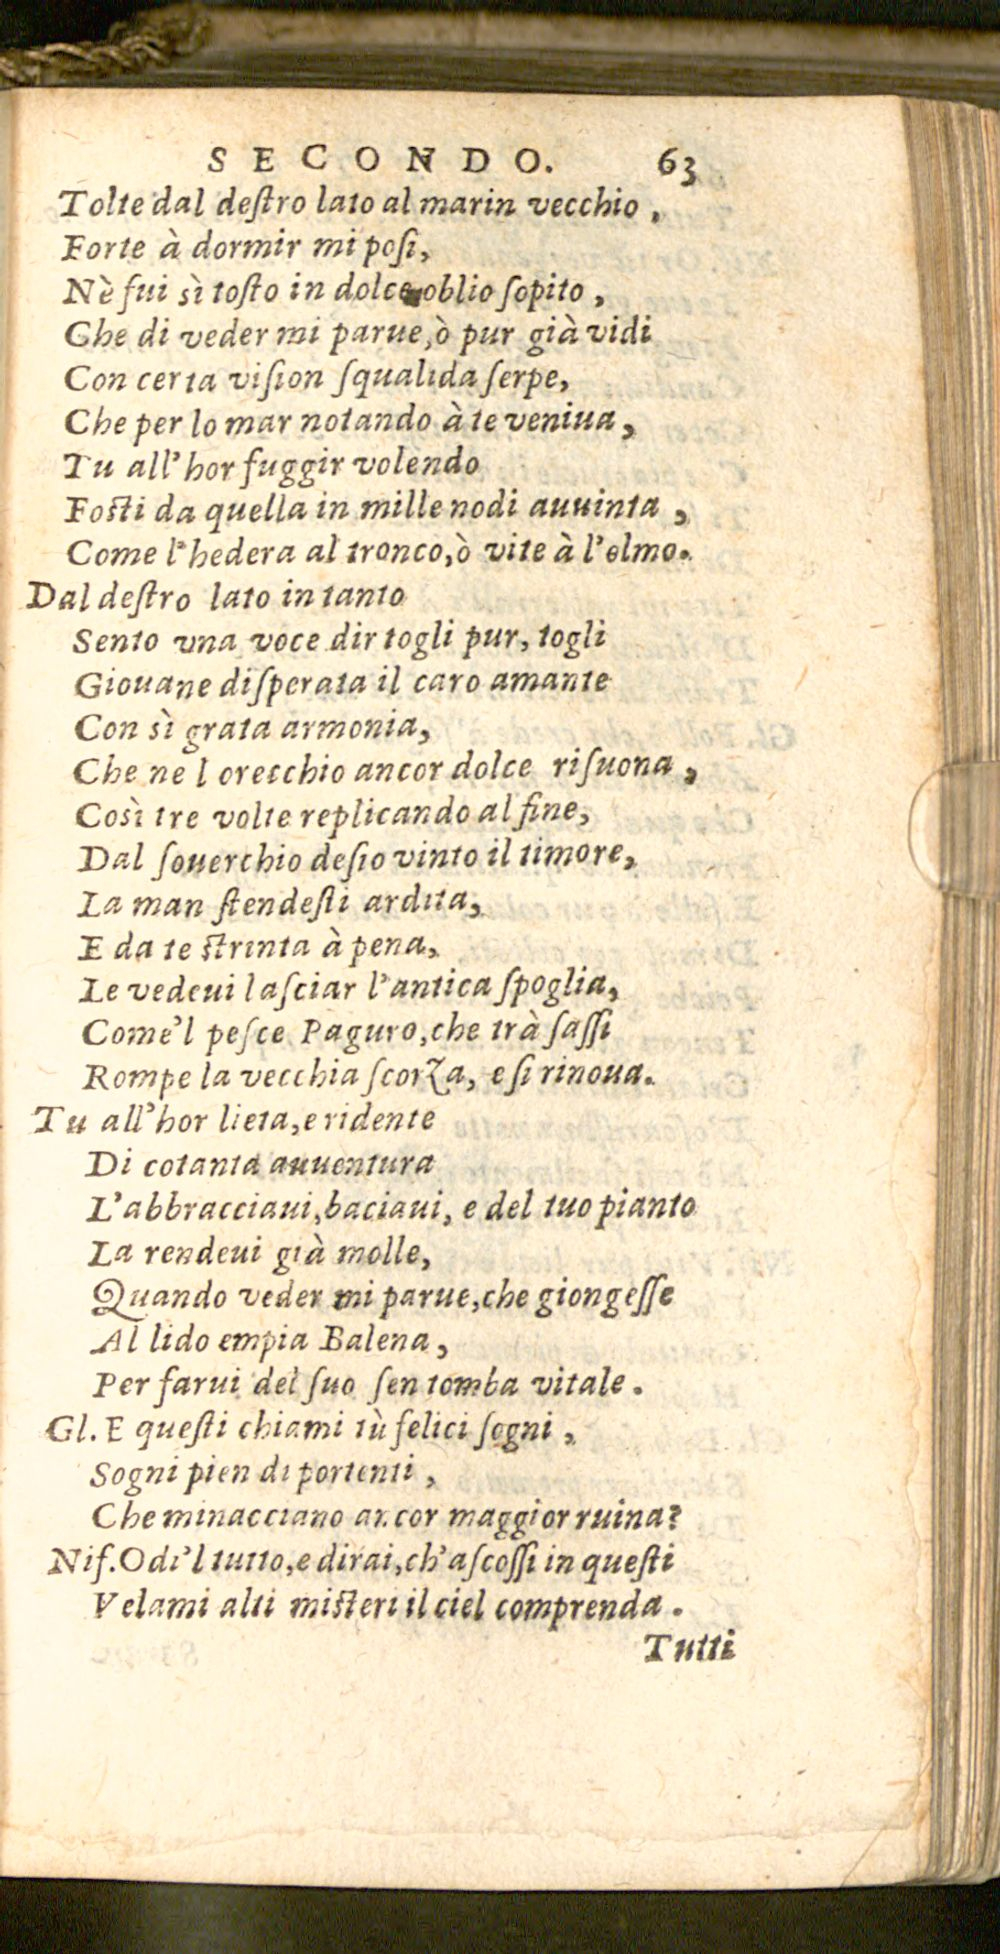 SECONDO. 63
Tolte dal deſtro lato al marin vecchio,
Forte à dormir mi poſi,
Nè fui sì toſto in dolce oblio ſopito,
Che di veder mi parue, ò pur già vidi
Con certa viſion ſqualida ſerpe,
Che per lo mar notando à te veniua,
Tu all'hor fuggir volendo
Foſti da quella in mille nodi auuinta,
Come l'hedera al tronco, ò vite à l'olmo.
Dal deſtro lato in tanto
Sento vna voce dir togli pur, togli
Giouane diſperata il caro amante
Con sì grata armonia,
Che ne l orecchio ancor dolce riſuona,
Così tre volte replicando al fine,
Dal ſouerchio deſio vinto il timore,
La man ſtendeſti ardita,
E da te ſtrinta à pena,
Le vedeui laſciar l'antica ſpoglia,
Come'l peſce Paguro, che trà ſaſſi
Rompe la vecchia ſcorza, e ſi rinoua.
Tu all'hor lieta, e ridente
Di cotanta auuentura
L'abbracciaui, baciaui, e del tuo pianto
La rendeui già molle,
Quando veder mi parue, che giongeſſe
Al lido empia Balena,
Per farui del ſuo ſen tomba vitale.
Gl. E queſti chiami tù felici ſogni,
Sogni pien di portenti,
Che minacciano ancor maggior ruina?
Niſ. Odi'l tutto, e dirai, ch'aſcoſſi in queſti
Velami alti miſteri il ciel comprenda.
Tutti